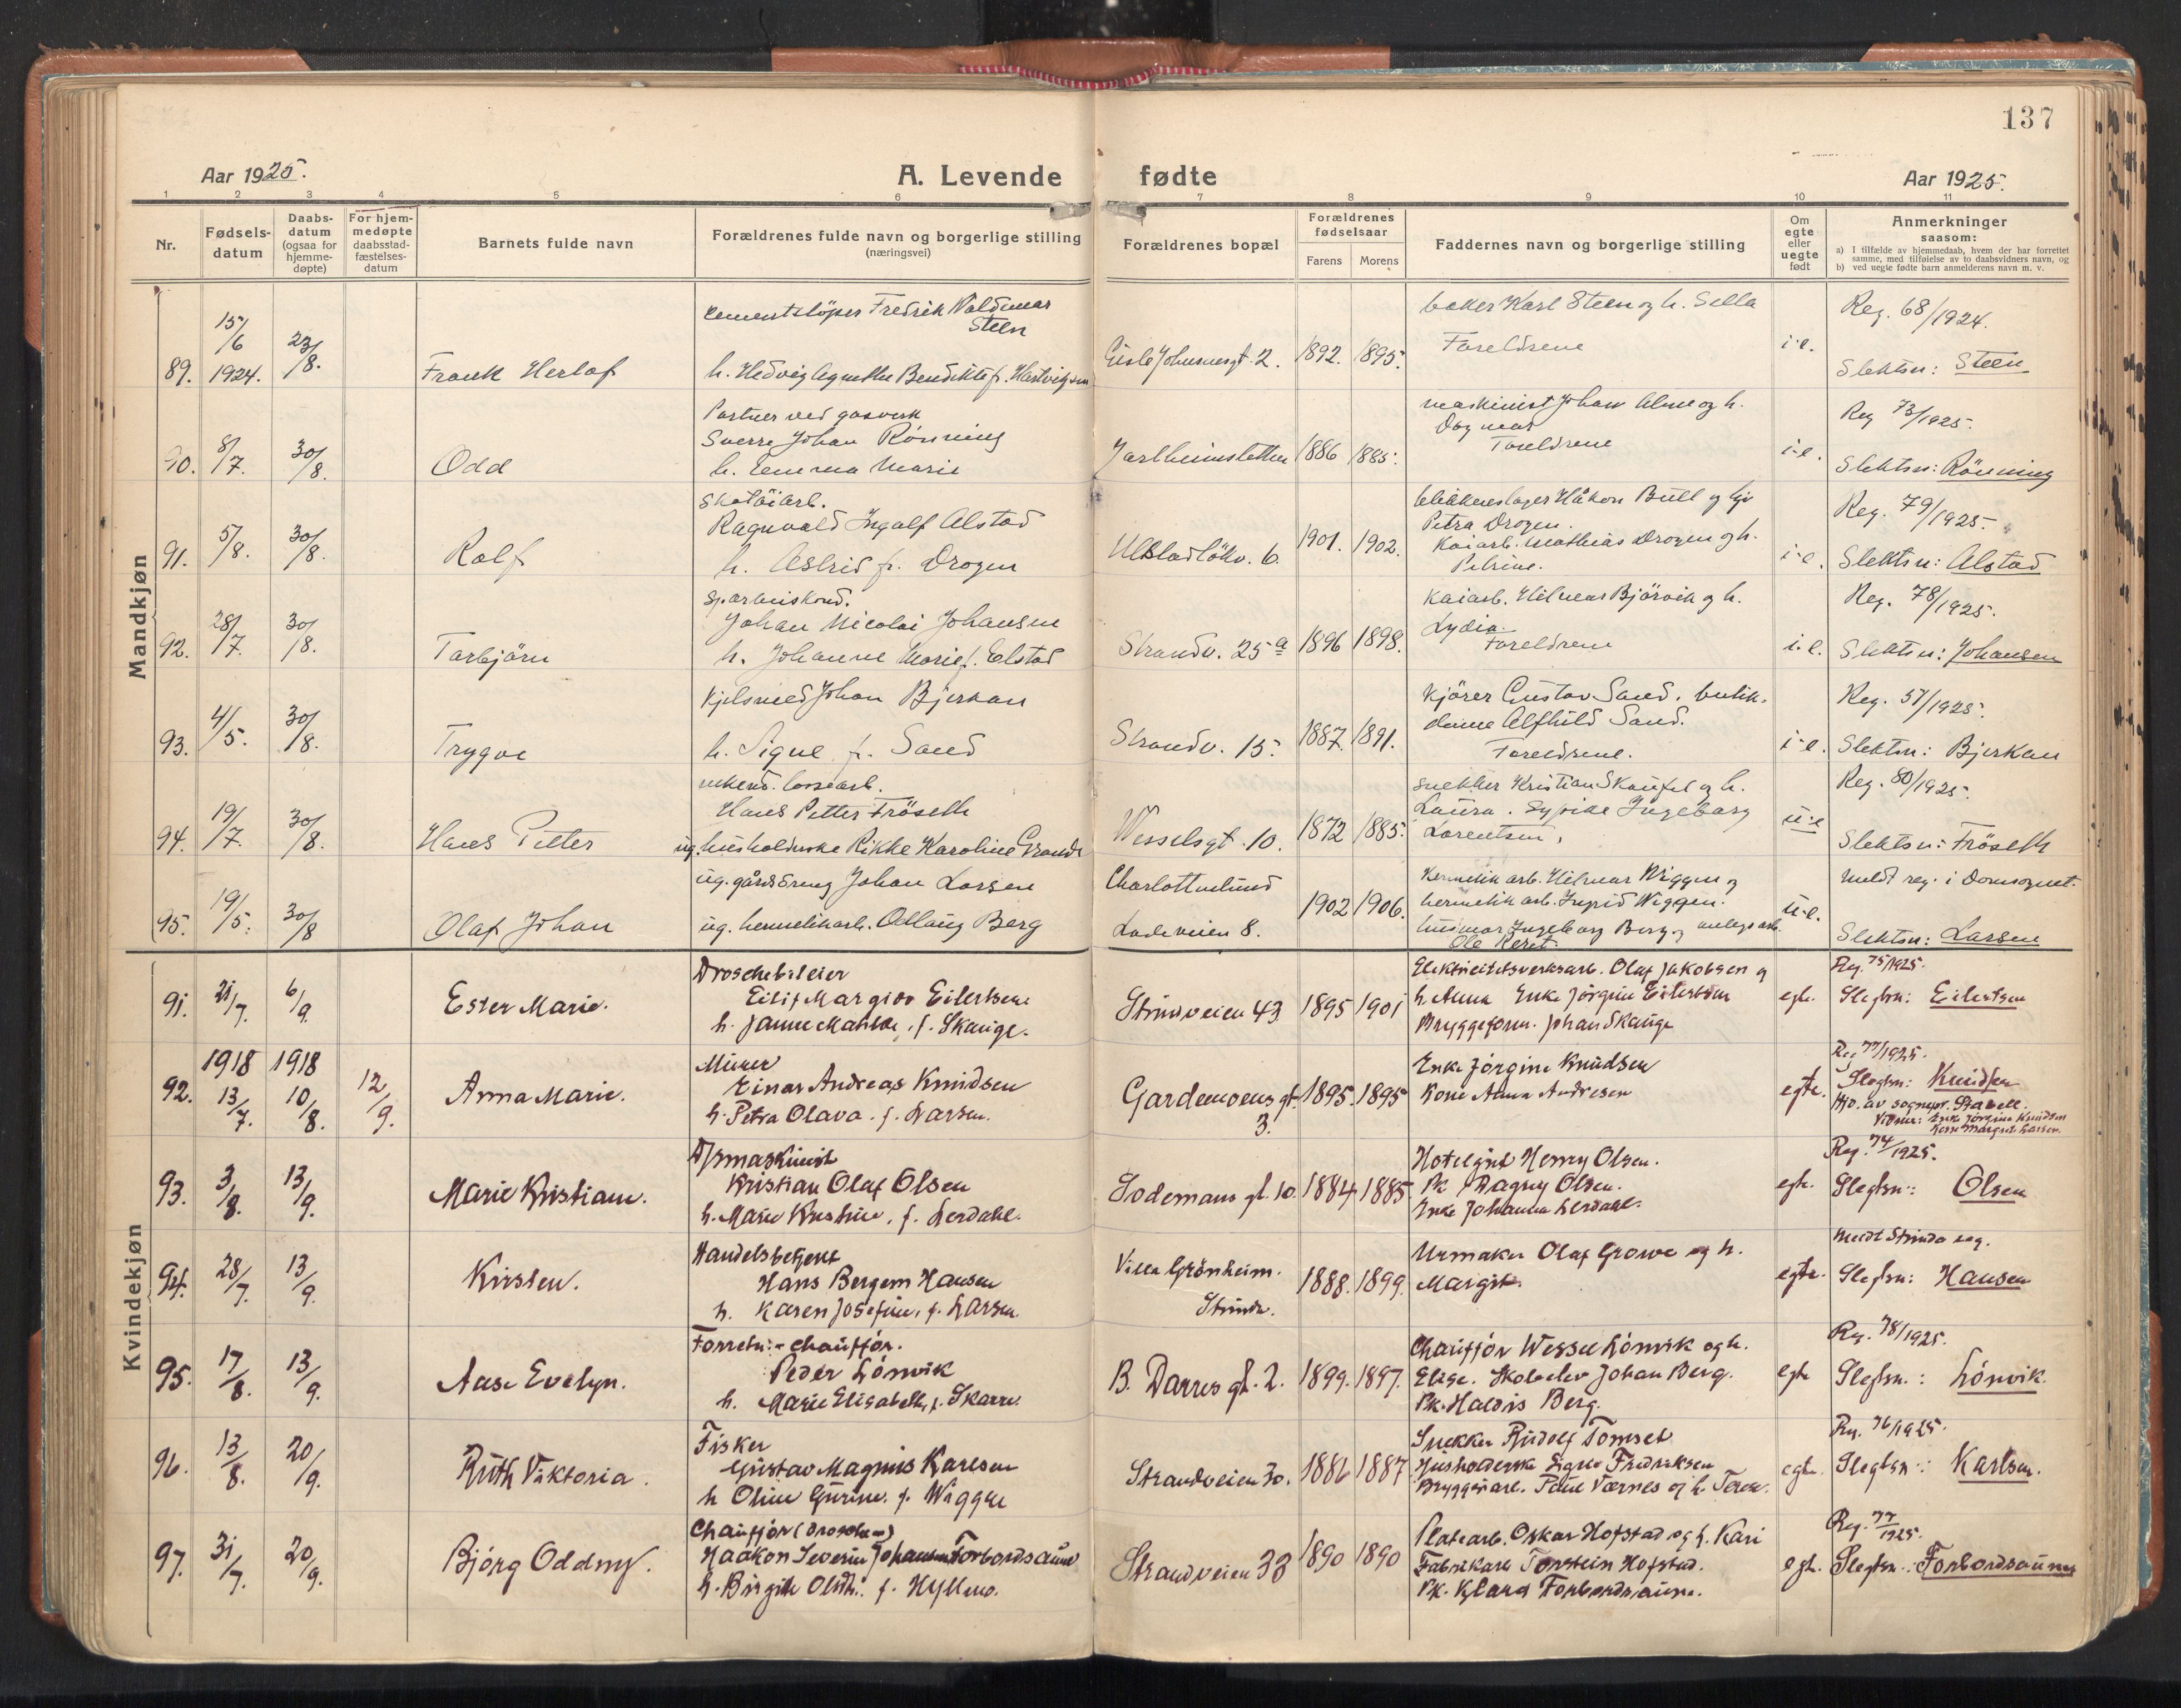 137
Aar 1925.
A. Levende fødte
Aar 1925.
1 2 3 4 5 6 7 8 9 10 11
Nr.
Fødsels-
datum
Daabs-
datum
(ogsaa for
hjemme-
døpte)
For hjem-
medøpte
daabsstad-
fæstelses-
datum
Barnets fulde navn
Forældrenes fulde navn og borgerlige stilling
(næringsvei)
Forældrenes bopæl
Forældrenes
fødselsaar
Farens Morens
Faddernes navn og borgerlige stilling
Om
egte
eller
uegte
født
Anmerkninger
saasom:
a) I tilfælde av hjemmedaab, hvem der har forrettet
samme, med tilføielse av to daabsvidners navn, og
b) ved uegte fødte barn anmelderens navn m. v.
Mandkjøn
89.
15/6
1924.
23/8.
Frank Herlof
Fredrik Valdemar
Steen
h. Hedvig Agnethe Benedikte f. Hartvigsen
Gisle Johnsensgt. 2.
1892. 1895.
baker Karl Steen og h. Sella
Foreldrene
i-e.
Reg. 68/1924.
Slektsn: Steen
90.
8/7.
30/8.
Odd
Portner ved gasverk
Sverre Johan Rönning
h. Emma Marie
Jarlheimsletten
1886 1885.
maskinist Johan Alme og h.
Dagmar
Foreldrene
i-e.
Reg 73/1925.
Slektsn: Rönning
91.
5/8.
30/8.
Rolf
Skotöiarb.
Ragnvald Ingolf Alstad
h. Astrid f. Drogen
Ulstadlökv. 6.
1901. 1902.
blikkenslager Håkon Bull og
Petra Drogen.
Kaiarb. Mathias Drogen og h.
Petrine.
i-e.
Reg. 79/1925.
Slektsn: Alstad
92.
28/7.
30/8.
Torbjörn
Johan Nicolai Johansen
h. Johanne Marie f. Elstad
Strandv. 25 a
1896 1898.
Kaiarb. Hilmar Bjørvik og h.
Lydia.
Foreldrene
i-e.
Reg. 78/1925.
Slektsn: Johansen
93.
4/5.
30/8.
Trygve
Kjelsmed Johan Bjerkan
h. Signe f. Sand
Strandv. 15.
1887. 1891.
Kjörer Gustav Sand, butik-
dame Alfhild Sand.
Foreldrene.
i-e.
Reg. 57/1925.
Slektsn: Bjerkan
94.
19/7.
30/8.
Hans Petter
Hans Petter Fröseth
ug. husholderske Rikke Karoline Grande
Wesselsgt. 10.
1872 1885.
snekker Kristian Skaufel og h.
Laura. Sypike Ingeborg
Lorentsen.
u-e
Reg. 80/1925.
Slektsn: Fröseth
95.
19/5.
30/8
Olaf Johan
ug. gårdsdreng Johan Larsen
ug. hermetikarb. Odlaug Berg
Charlottenlund
Ladeveien 8.
1902 1906.
hermetikarb. Hilmar Wiggen og
hermetikarb. Ingrid Wiggen.
husmor Ingeborg Berg og anlegsarb.
Ole Reset
u-e.
meldt reg. i Domsognet.
Slektsn: Larsen
Kvindekjøn
91.
21/7.
6/9.
Ester Marie.
Droschebileier
Eilif Margido Eilertsen
h. Janne Mathea, f. Skauge.
Strindveien 43
1895 1901
Elektricitetsverksarb. Olaf Jakobsen og
h. Anna Enke Jörgine Eilertsen
Bryggeform. Johan Skauge
egte.
Reg. 75/1925.
Slegtsn: Eilertsen
92.
1918
13/7.
1918
10/8.
12/9.
Anna Marie.
Murer
Einar Andreas Knudsen
h. Petra Olava. f. Larsen.
Gardemoens gt.
3.
1895. 1895
Enke Jörgine Knudsen
Kone Anna Andresen
egte.
Reg 77/1925.
Slegtsn: Knudsen
Hjd. av sognepr. Stabell.
Vidner: Enke Jörgine Knudsen
Kone Margrete Larsen.
93.
3/8.
13/9.
Marie Kristiane.
D/smaskinist
Kristian Olaf Olsen
h. Marie Kristine, f. Lerdahl.
Sodemans gt. 10.
1884 1885
Hotelgut Henry Olsen.
Pk Dagny Olsen.
Enke Johanna Lerdahl.
egte.
Reg. 74/1925.
Slegtsn: Olsen
94.
28/7.
13/9.
Kirsten.
Handelsbetjent
Hans Bergem Hansen
h. Karen Josefine, f. Larsen
Villa Grönheim.
Strinda.
1888. 1899.
Urmaker Olaf Growe og h.
Margit.
egte.
meldt Strinda reg.
Slegtsn: Hansen
95.
17/8.
13/9.
Aase Evelyn.
Forretn.-chauffør.
Peder Lönvik
h. Marie Elisabeth, f. Skarre.
B. Darres gt. 2.
1899. 1897.
Chauffør Wessel Lönvik og h.
Elise. Skoleelev Johan Berg.
Pk. Haldis Berg.
egte
Reg. 78/1925.
Slegtsn.: Lönvik.
96.
13/8.
20/9.
Ruth Viktoria.
Fisker
Gustav Magnus Karlsen
h Oline Gurine. f. Wiggen
Strandveien 30.
1886 1887
Snekker Rudolf Tomset
Husholderske Signe Fredriksen
Bryggeriarb. Paul Værnes og h. Terese.
egte.
Reg. 76/1925.
Slegtsn: Karlsen.
97.
31/7.
20/9.
Bjørg Oddny.
Chauffør (drosche)
Haakon Severin Johansen Forbordsaune
h. Birgitte f. Hyllmo.
Strandveien 33
1890 1890
Platearb. Oskar Hofstad og h. Kari
Fabrikarb Torstein Hofstad.
Pk. Klara Forbordsaune.
egte.
Reg. 77/1925.
Slegtsn.: Forbordsaune